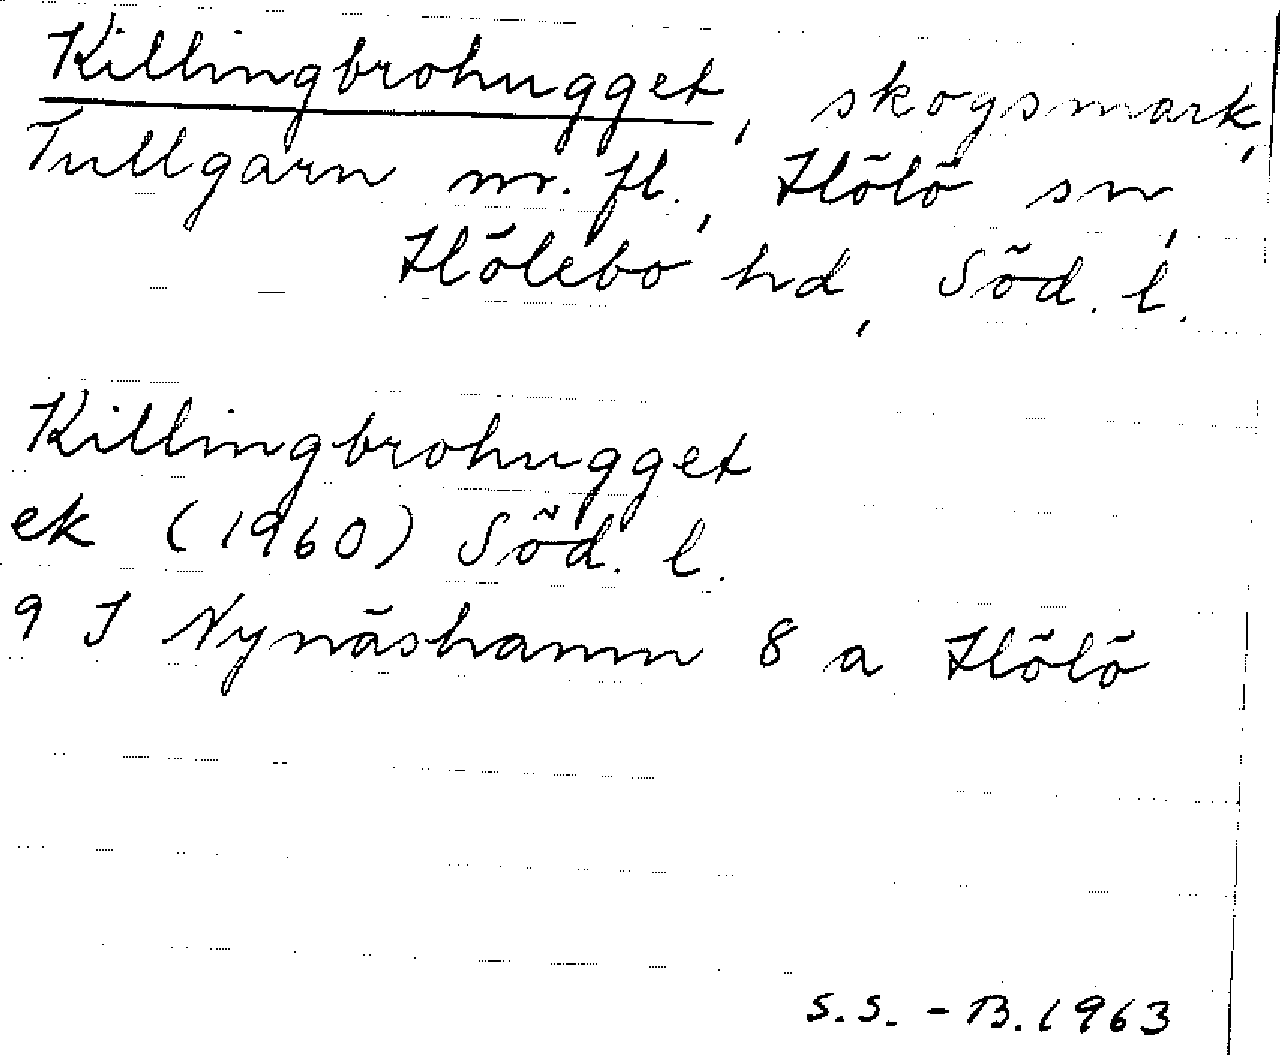 Killingbrohugget, skogsmark,
Tullgarn m. fl., Hölö sn,
Hölebo hd, Söd. l.
Killingbrohugget
ek (1960) Söd. l.
9 I Nynäshamn 8 a Hölö
S.S. - B. 1963